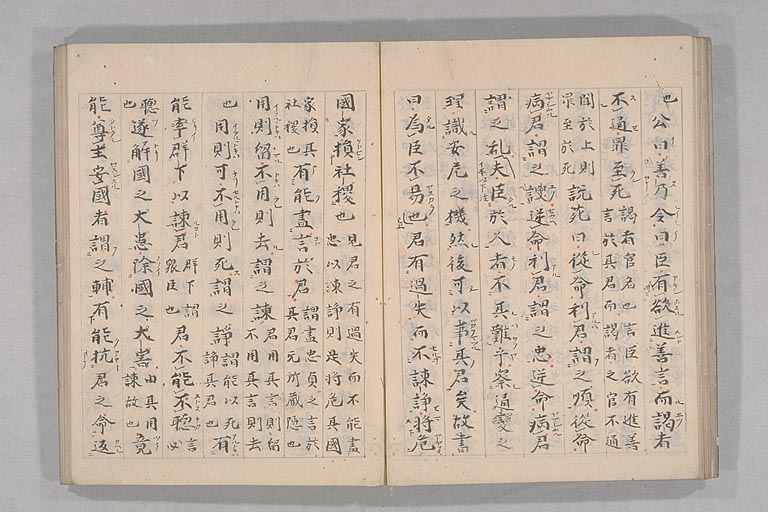 也公曰善乃令曰臣有欲進善言而謁者
不通罪至死謁者官名也言臣欲有進善言於其君而謁者之官不通
聞於上則罪至於死說死曰從命利君謂之順從命
病君謂之諛逆命利君謂之忠逆命病君
謂之乱夫臣於人者不其難乎案道變之
理識安危之機然後可以事其君矣故書
曰為臣不易也君有過失而不諫諍將危
國家損社稷也見君之有過失而不能盡忠以諫諍則是將危其國
家損其社稷也有能盡言於君謂盡忠貞之言於其君无所蔵隱也
用則留不用則去謂之諫君用其言則留不用其言則去
也用則可不用則死謂之諍謂能以死諍其君也有
能率群下以諫君群下謂衆臣也君不能不聴以言
聴也遂解國之大患除國之大害由其用諫故也竟
能尊主安國者謂之輔有能抗君之命返